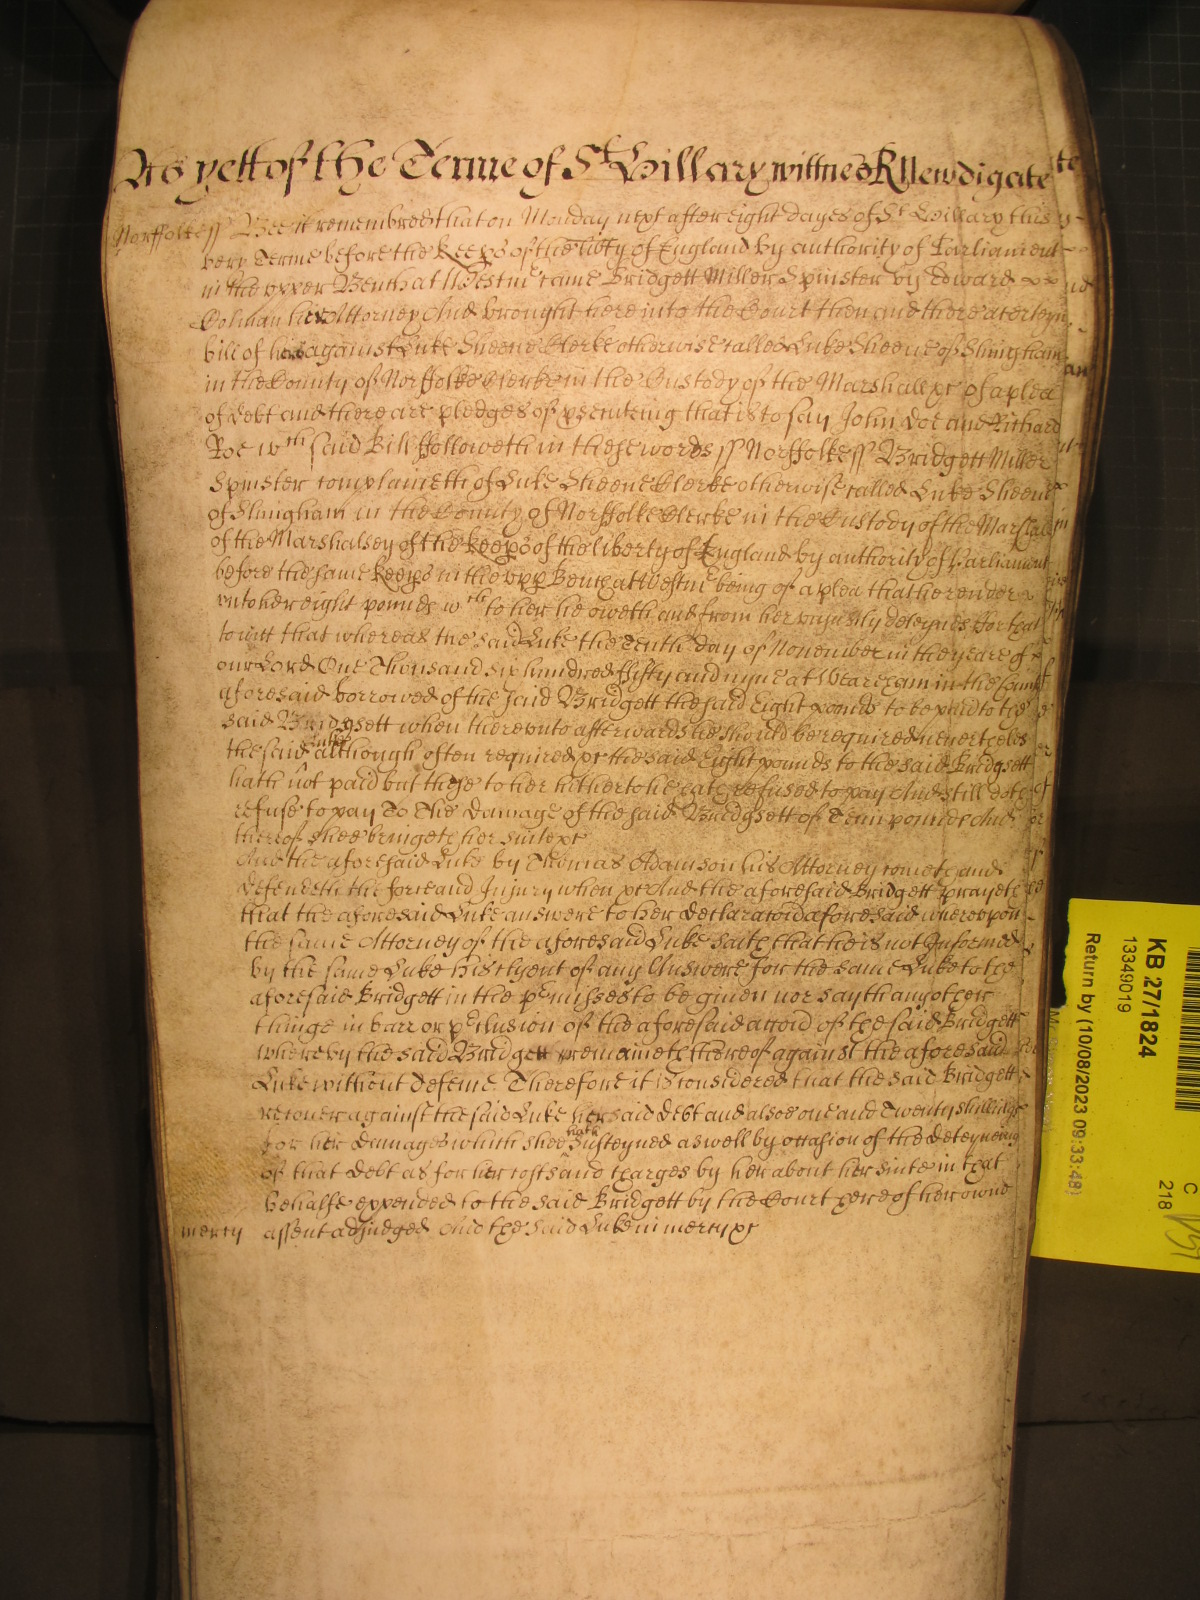 As yett of the Terme of St Hillary wittnes R Newdigate
Norffolke ss Bee it remembred that on Monday next after eight dayes of St Hillary this
very Terme before the Keeps of the libty of England by authority of Parliament
in the upper Bench at Westmr came Bridgett Miller Spinster by Edward
Colman her Attorney And brought here into the Court then and there a certeyne
bill of hers against Luke Skeene Clerke otherwise called Luke Skeene of Slingham
in the County of Norffolke Clerke in the Custody of the Marshall &c of a plea
of Debt and there are pledges of psecuteing that is to say John Doe and Richard
Roe wch said Bill ffolloweth in these words ss Norffolke ss Bridgett Miller
Spinster complaineth of Luke Skeene Clerke otherwise called Luke Skeene
of Slingham in the County of Norffolke Clerke in the Custody of the Marshall
of the Marshalsey of the Keeps of the liberty of England by authority of Parliament
before the same Keeps in the upp Bench at Westmr being of a plea that he render
unto her eight pounds wch to her he oweth and from her unjustly deteynes ffor that
to witt that whereas the said Luke the Tenth day of November in the yeare of
our Lord One Thousand six hundred ffifty and nyne at Wareham in the County
aforesaid borrowed of the said Bridgett the said Eight pounds to be paid to the
said Bridgett when thereunto afterwards he should be required neverthelesse
the said Luke although often required &c the said Eight pounds to the said Bridgett
hath not paid but these to her hitherto he hath refused to pay And still doth
refuse to pay To The damage of the said Bridgett of Tenn pounds And
thereof shee bringeth her suite &c
And the aforesaid Luke by Thomas Adamson his Attorney cometh and
defendeth the force and Injury when &c And the aforesaid Bridgett prayeth
that the aforesaid Luke answere to her declaracon aforesaid whereuppon
the same Attorney of the aforesaid Luke saith that he is not Informed
by the same Luke his clyent of any Answere for the same Luke to the
aforesaid Bridgett in the pmisses to be given nor sayth any other
thinge in barr or pclusion of the aforesaid accon of the said Bridgett
whereby the said Bridgett remaineth thereof against the aforesaid
Luke without defence Therefore it is considered that the said Bridgett
recover against the said Luke her said debt and alsoe one and Twenty shillings
for her damages which shee hath susteyned aswell by occasion of the deteyneing
of that debt as for her costs and charges by her about her suite in that
behalfe expended to the said Bridgett by the Court here of her owne
mercy assent adjudged And the said Luke in mercy &c
KB 27/1824
13349019
Return by (10/08/2023 09:33:48)
C
218